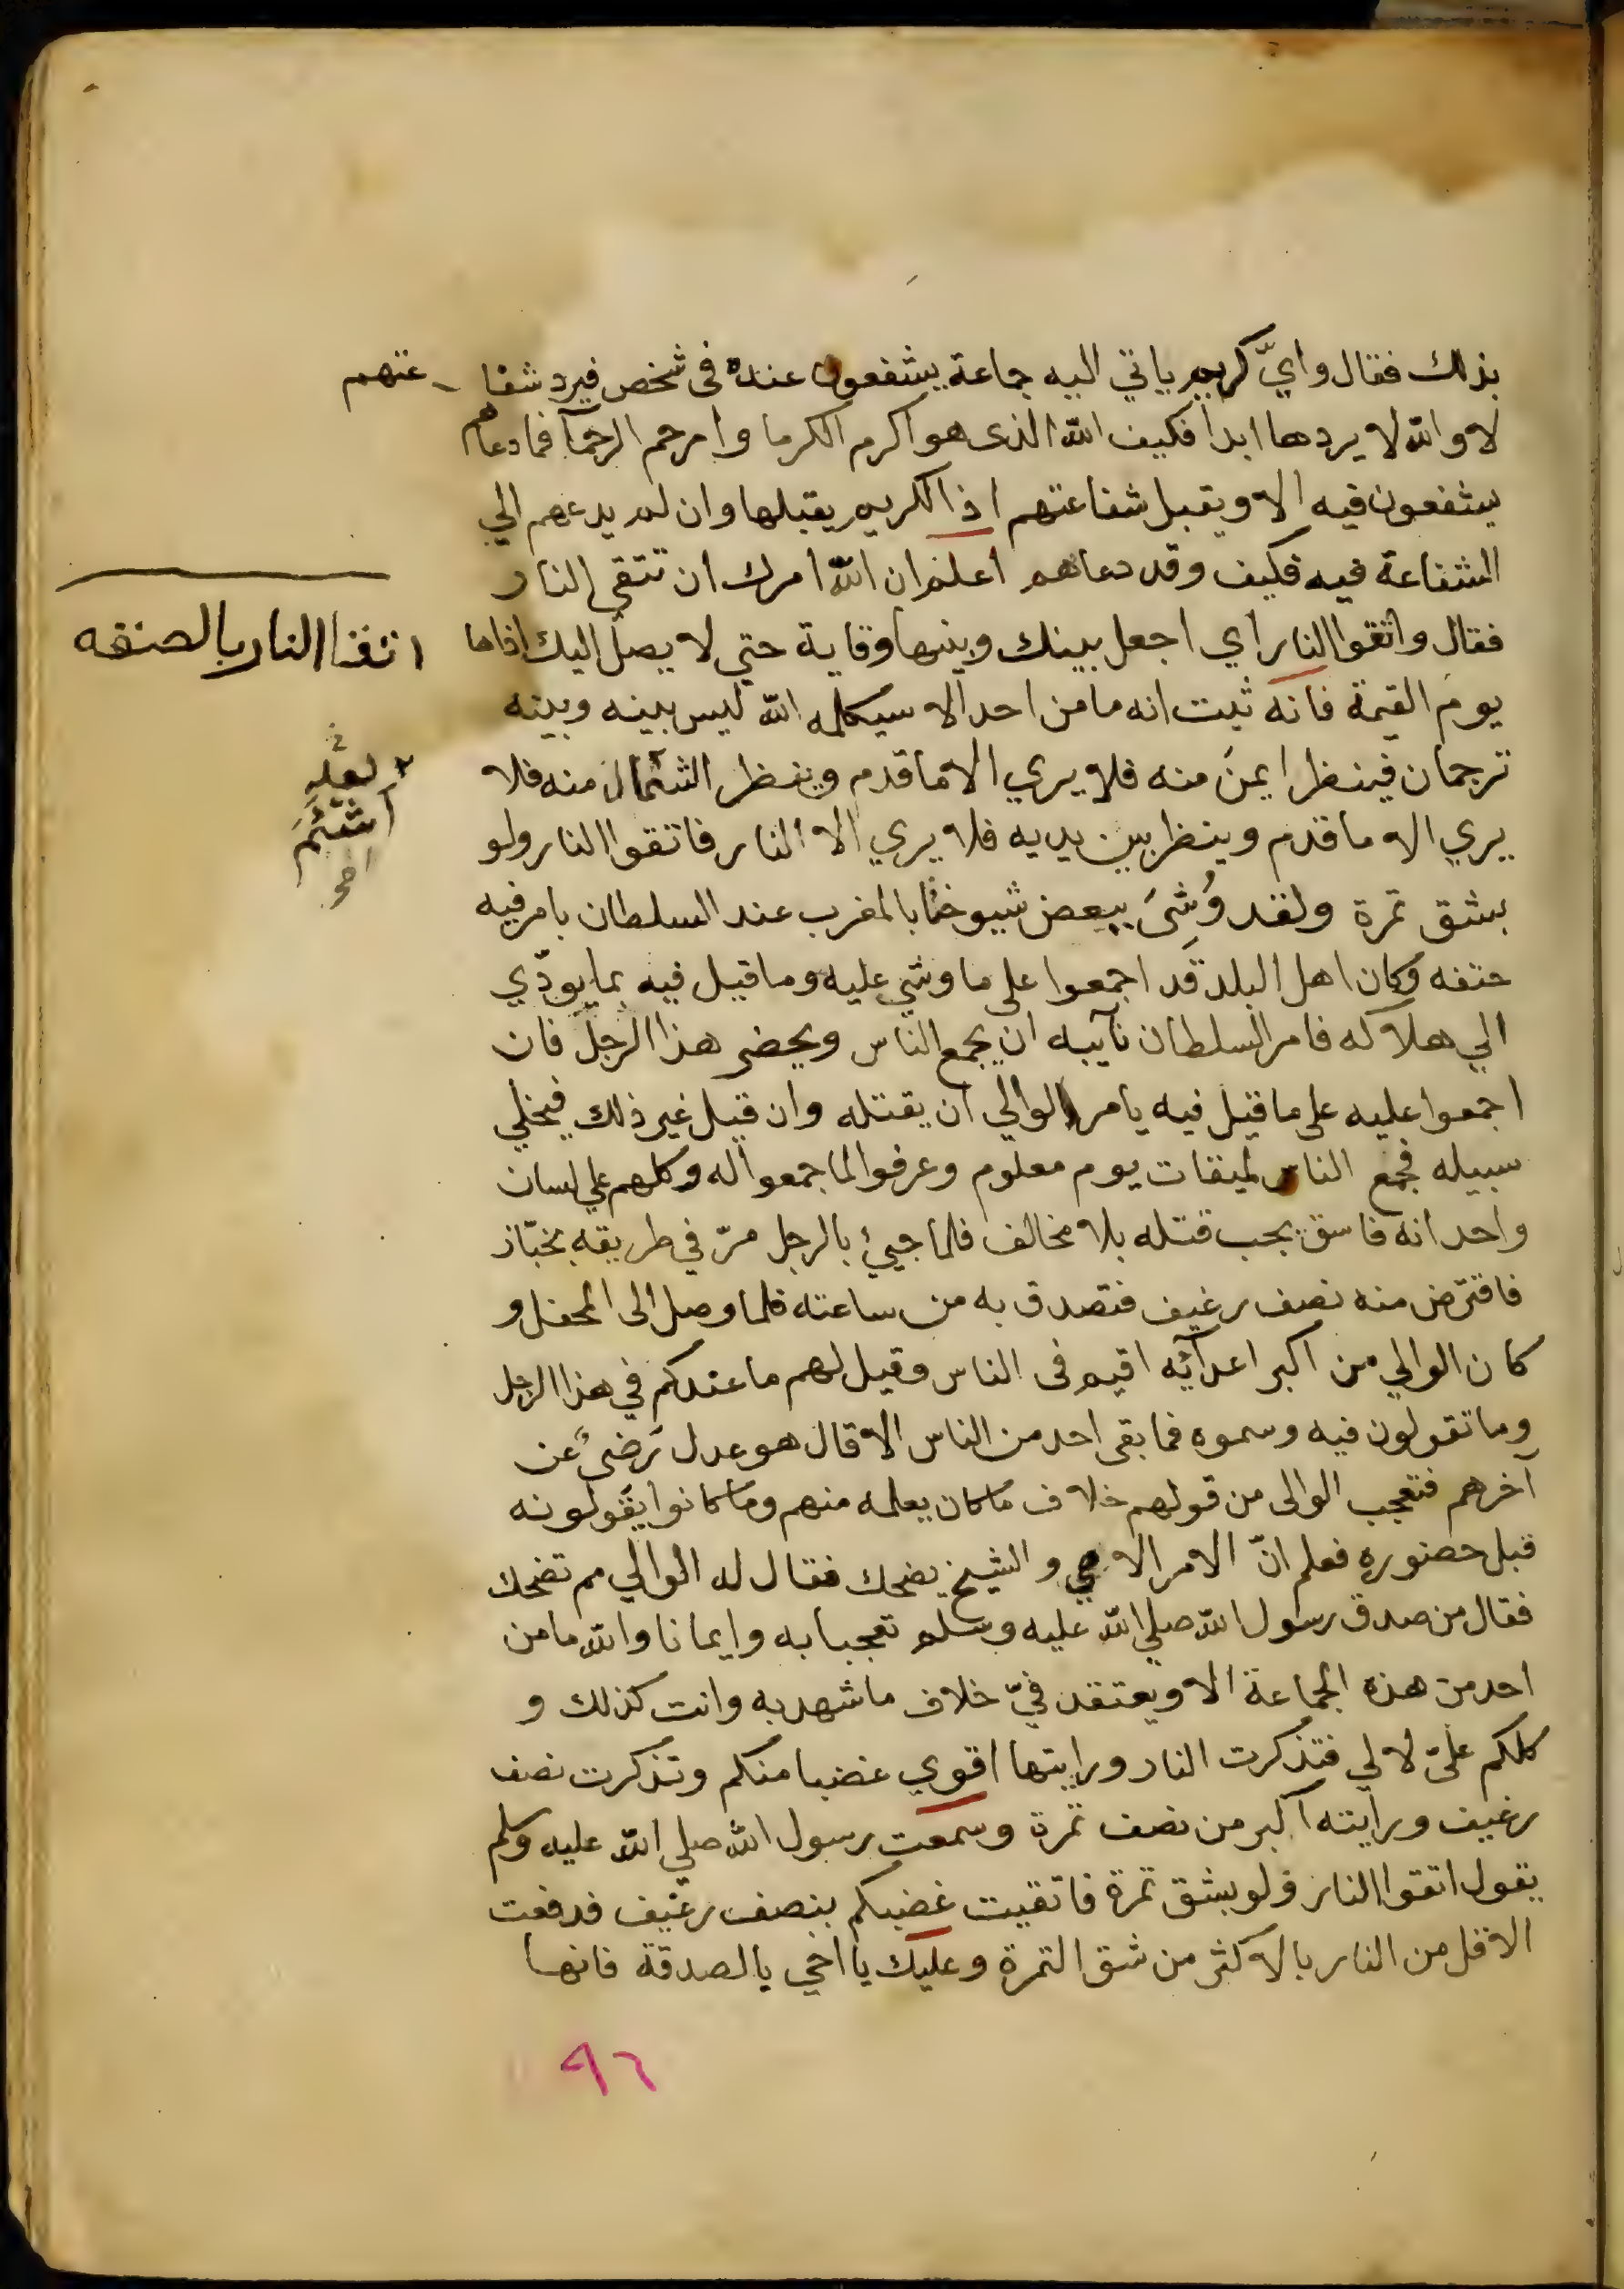 بذلك فقال وايّ كريم ياتي اليه جماعة يشفعون عنده فى شخص فيرد شفا ـ عتهم
لا والله لا يردها ابدا فكيف الله الذى هو اكرم الكرما وارحم الرحمآ فما دعاهم
يشفعون فيه الا ويقبل شفاعتهم اذ الكريم يقبلها وان لم يدعهم الي
الشفاعة فيه فكيف وقد دعاهم اعلم ان الله امرك ان تتقى النار
فقال واتقوا النار اي اجعل بينك وبينها وقاية حتي لا يصل اليك اذاها
اتقا النار بالصدقه
يوم القيمة فانه ثبت انه ما من احد الا سيكلمه الله ليس بينه وبينه
ترجمان فينظر ايمن منه فلا يري الا ما قدم وينظر الشمال منه فلا
لعله
أشئم
يري الا ما قدم وينظر بين يديه فلا يري الا النار فاتقوا النار ولو
بشق تمرة ولقد وُشِىَ ببعض شيوخنا بالمغرب عند السلطان بامر فيه
حتفه وكان اهل البلد قد اجمعوا على ما وشي عليه وما قيل فيه بما يودّي
الي هلاكه فامر السلطان نآيبه ان يجمع الناس ويحضر هذا الرجل فان
اجمعوا عليه على ما قيل فيه يامر الوالي ان يقتله وان قيل غير ذلك فيخلي
سبيله فجمع الناس لميقات يوم معلوم وعرفوا لما جمعوا له وكلهم علي لسان
واحد انه فاسق يجب قتله بلا مخالف فلما جيئ بالرجل مرّ في طريقه بخبّاز
فاقترض منه نصف رغيف فتصدق به من ساعته فلما وصل الى المحفل و
كان الوالي من اكبر اعدآيه اقيم فى الناس وقيل لهم ما عندكم في هذا الرجل
وما تقولون فيه وسموه فما بقى احد من الناس الا قال هو عدل رَضىً عن
آخرهم فتعجب الوالى من قولهم خلاف ما كان يعلمه منهم وما كانوا يقولونه
قبل حضوره فعلم انّ الامر الاهي والشيخ يضحك فقال له الوالي مم تضحك
فقال من صدق رسول الله صلي الله عليه وسلم تعجبا به وايمانا والله ما من
احد من هذه الجماعة الا ويعتقد فيّ خلاف ما شهد به وانت كذلك و
كلكم علىّ لا لي فتذكرت النار ورايتها اقوي غضبا منكم وتذكرت نصف
رغيف ورايته اكبر من نصف تمرة وسمعت رسول الله صلي الله عليه وسلم
يقول اتقوا النار ولو بشق تمرة فاتقيت غضبكم بنصف رغيف فدفعت
الاقل من النار بالاكثر من شق التمرة وعليك يا اخي بالصدقة فانها
٩٦